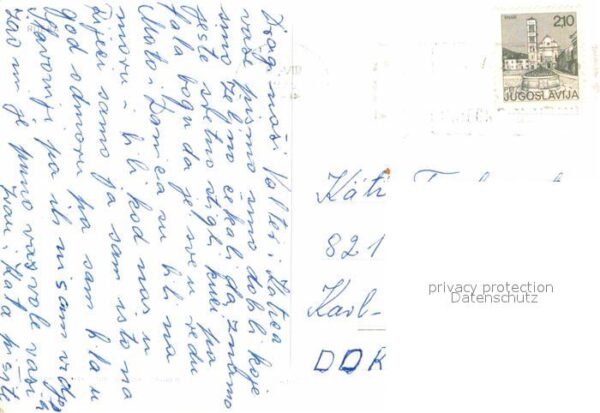 Dragi naši Valter i Katica
vaše pismo smo dobili koje
smo željno čekali da znamo
jeste sretno stigli kući pa
fala bogu da je sve u redu
Mato i Danica su bili na
moru i bili kod nas u
Rijeci samo ja sam isto na
god odmoru pa sam bila u
pa ih nisam
žao mi je puno vas vole vaši
i Kata pišite
HVAR
2,10
JUGOSLAVIJA
Käti
821
Karl-
DDR
privacy protection
Datenschutz